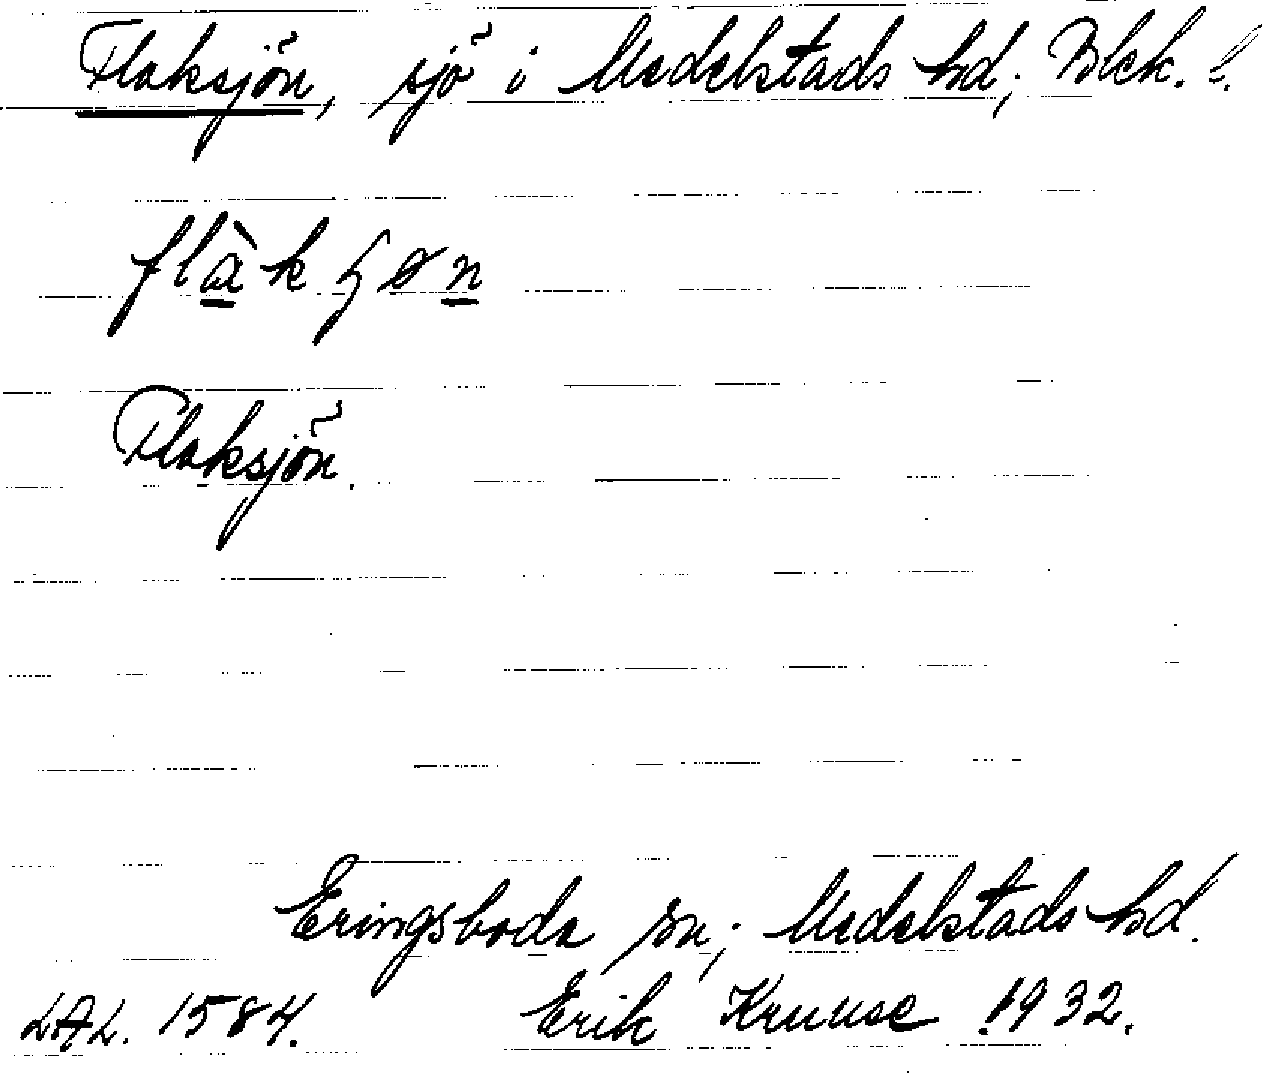 Flaksjön, sjö i Medelstads hd; Blek. l.
flàkʂøn
Flaksjön.
Eringsboda sn; Medelstads hd.
LAL. 1584. Erik Kruuse 1932.